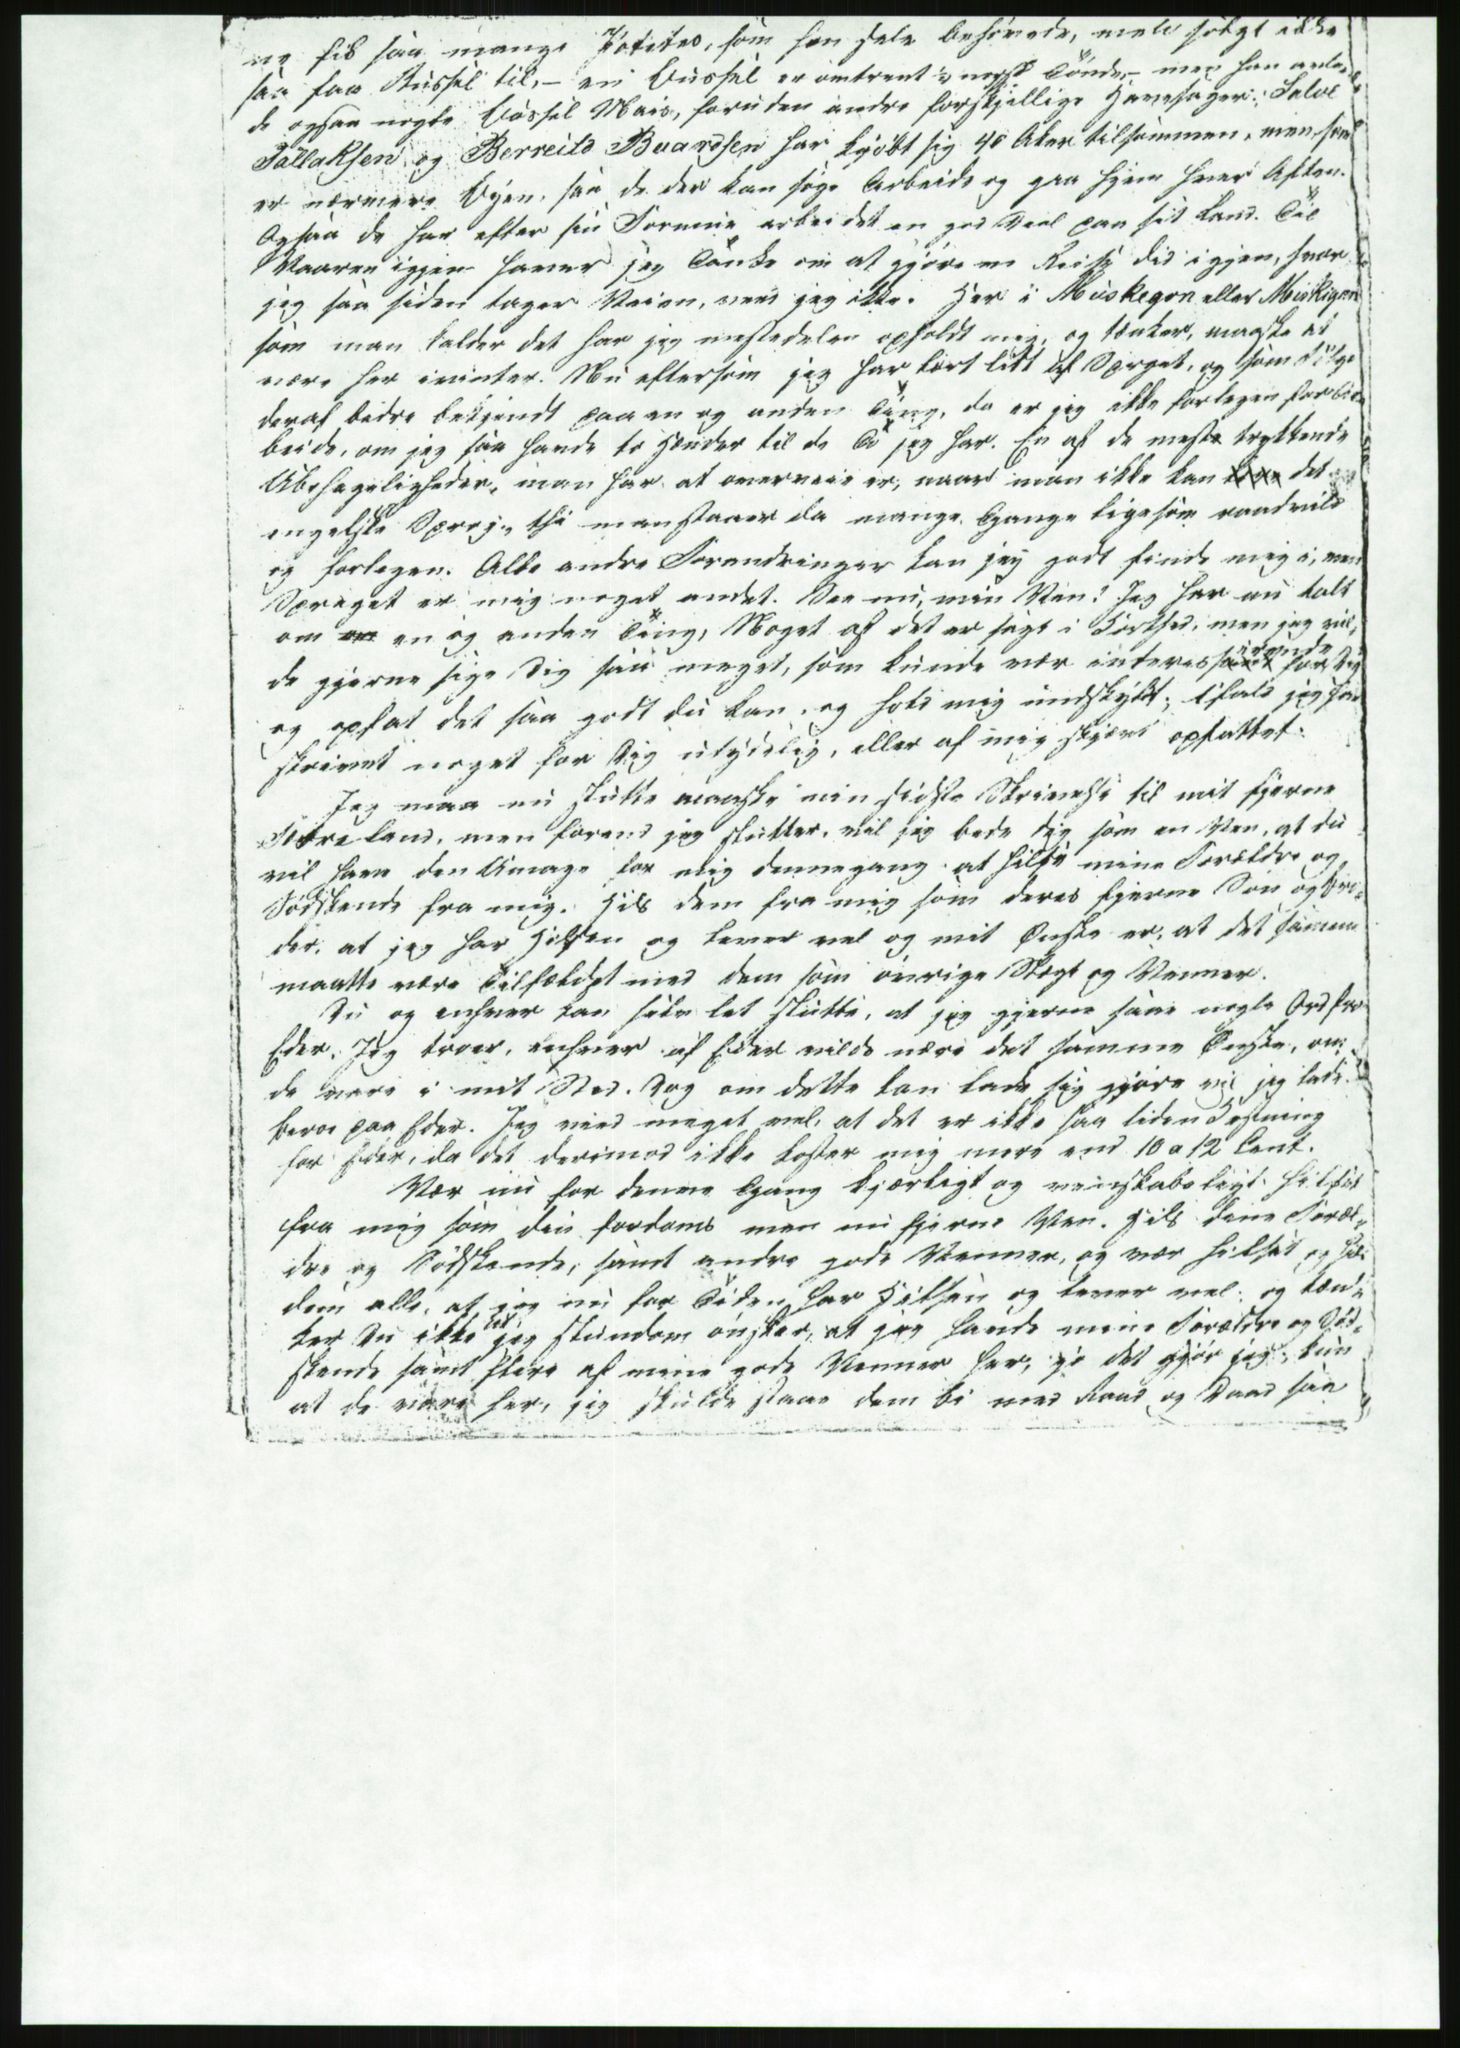 ne fik saa mange Potites, som han selv behøvede, men solgt ikke
saa faa Bussel til, – en Bussel er omtrent ¼ norsk Tönde, – men han avle-
de ogsaa nogle Bussel Mais, foruden andre forskjellige Havesager. Salve
Tallaksen og Berreild Buardsen har kjöbt sig 40 Aker tilsammen, men som
er nærmere Byen, saa de der kan söge Arbeide og gaa hjem hver Aften.
Ogsaa de har efter sin Formue arbeidet en god Deel paa sit Land. Til
Vaaren igjen haver jeg Tanke om at gjöre en Reise did igjen, hvor
jeg saa siden tager Veien, veed jeg ikke. Her i Muskegon eller Miskigen
som man kalder det har jeg mestedelen opholdt mig, og tænker, maaske at
være her ivinter. Nu eftersom jeg har lært litt af Sproget, og som Fölge
deraf bedre bekjendt paa en og anden Ting, da er jeg ikke forlegen for Ar-
beide, om jeg saa havde to Hænder til de To jeg har. En af de meste trykkende
Ubehageligheder, man har at overveie er, naar man ikke kan det
engelske Sprog, thi man staaer da mange Gange ligesom raadvild
og forlegen. Alle andre Forandringer kan jeg godt finde mig i, men
Sproget er mig noget andet. See nu, min Ven! Jeg har nu talt
om en og anden Ting, Noget af det er sagt i Korthed, men jeg vil-
de gjerne sige Dig saa meget, som kunde vær interessærende for Dig
og opfat det saa godt du kan, og hold mig undskyldt, ifald jeg har
skrevet noget for Dig utydelig, eller af mig skjævt opfattet.
Jeg maa nu slutte maaske min sidste Skrivelse til mit fjerne
Födreland, men forend jeg slutter, vil jeg bede Dig som en Ven, at du
vil have den Umage for mig dennegang at hilse mine Forældre og
Södskende fra mig. Hils dem fra mig som deres fjerne Sön og Bro-
der, at jeg har Helsen og lever vel og mit Önske er, at det samme
maatte være Tilfældet med dem som övrige Slægt og Venner.
Du og enhver kan selv let slutte, at jeg gjerne saae nogle Ord fra
Eder. Jeg troer, enhver af Eder vilde være det samme Önske, om
de vare i mit Sted. Dog om dette kan lade sig gjöre vil jeg lade
beroe paa Eder. Jeg veed meget vel, at det er ikke saa liden Kostning
for Eder, da det derimod ikke koster mig mere end 10 a 12 Cent.
Vær nu for denne Gang kjærligt og venskabeligt hilset
fra mig som din fordoms men nu fjerne Ven. Hils dine Foræl-
dre og Södskende, samt andre gode Venner, og vær hilset og hils
dem alle, at jeg nu for Tiden har Helsen og lever vel, og tæn-
ker Du ikke at jeg stundom önsker, at jeg havde mine Forældre og Söd-
skende samt flere af mine gode Venner her, jo det gjör jeg, kun
at de vare her, jeg skulde staae dem bi med Raad og Daad saa